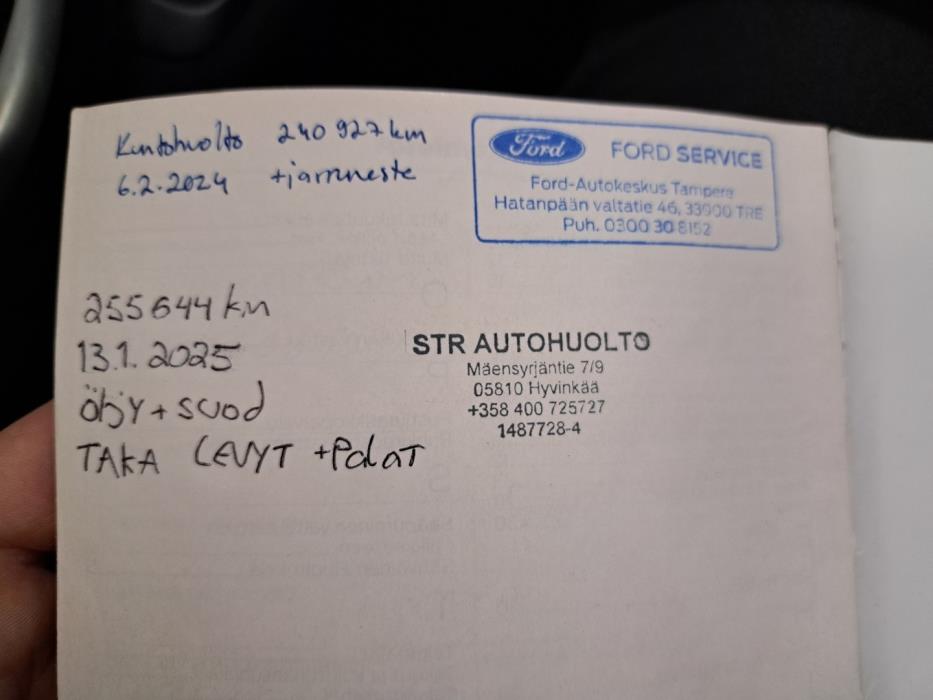 Kuntohuolto 240 927 km
6.2.2024 +jarruneste
Ford
FORD SERVICE
Ford-Autokeskus Tampere
Hatanpään valtatie 46, 33900 TRE
Puh. 0300 30 8152
255644 km
13.1.2025
Öljy + suod
TAKA LEVYT +PalaT
STR AUTOHUOLTO
Mäensyrjäntie 7/9
05810 Hyvinkää
+358 400 725727
1487728-4